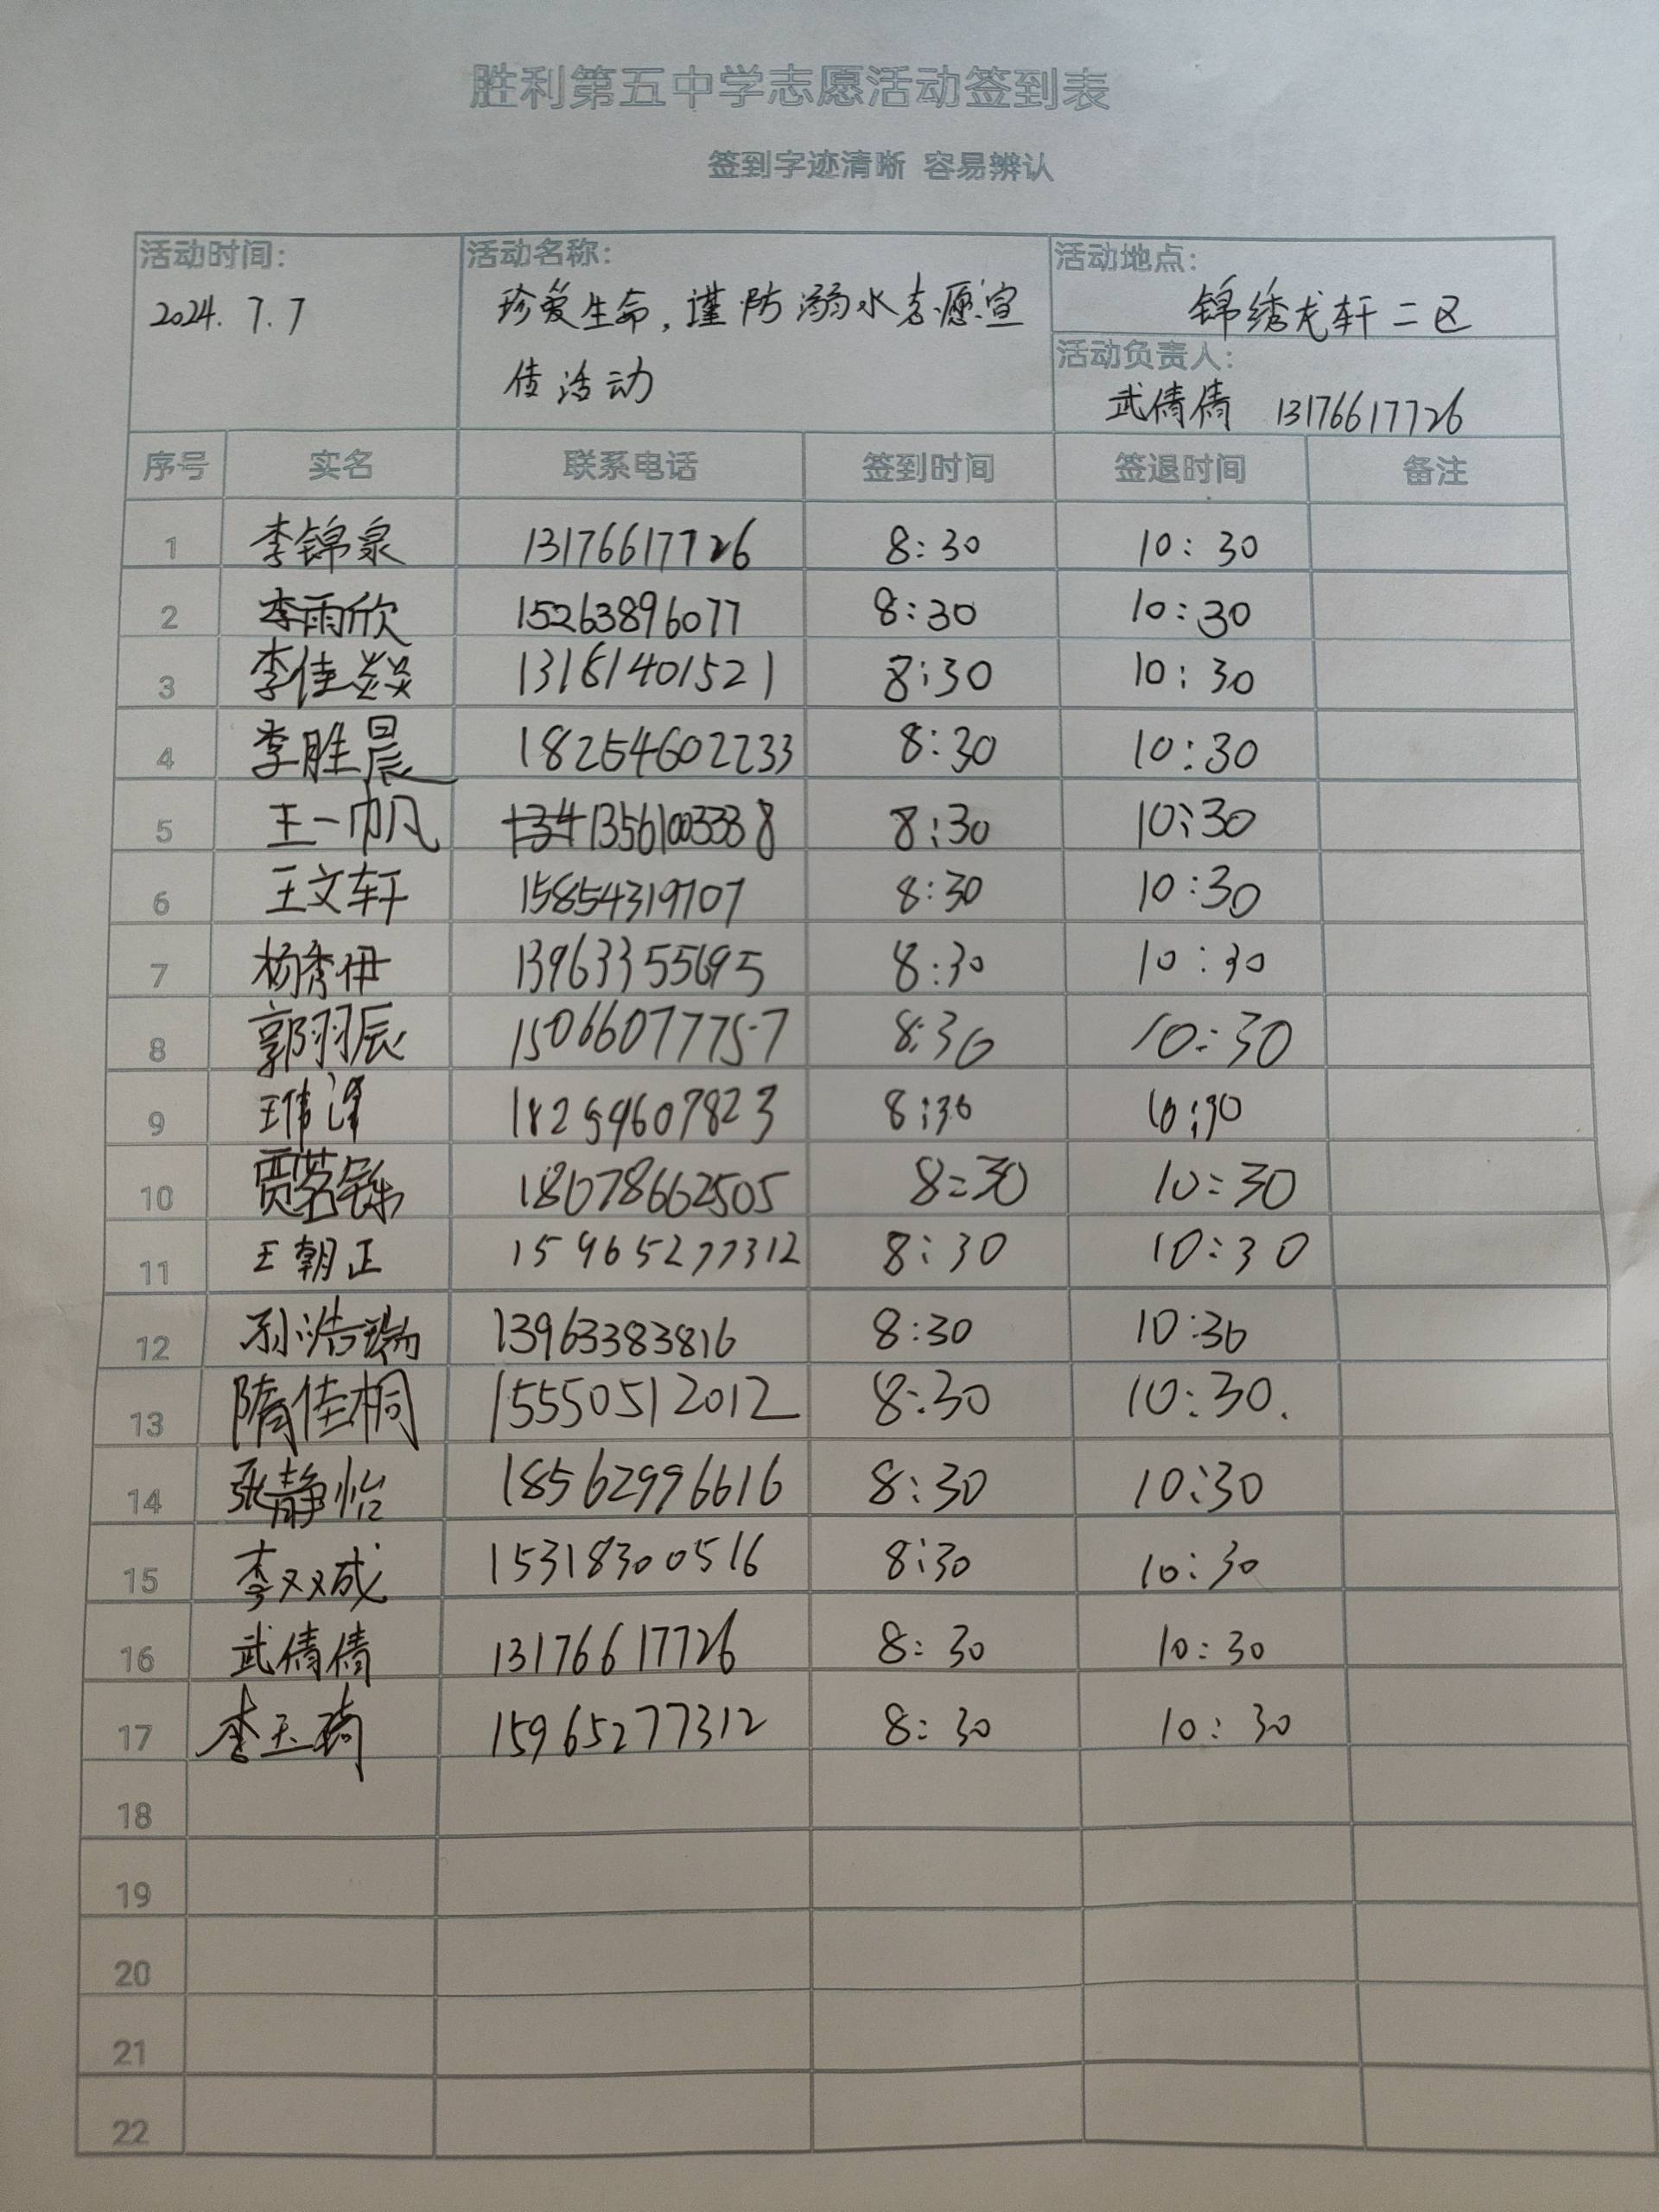 胜利第五中学志愿活动签到表
签到字迹清晰 容易辨认
活动时间: 活动名称: 活动地点:
2024.7.7 珍爱生命,谨防溺水志愿宣 锦绣龙轩二区
传活动
活动负责人:
武倩倩 13176617726
序号 实名 联系电话 签到时间 签退时间 备注
1 李锦泉 13176617726 8:30 10:30
2 李雨欣 15263896077 8:30 10:30
3 李佳燚 13181401521 8:30 10:30
4 李胜晨 18254602233 8:30 10:30
5 王一帆 13561003338 8:30 10:30
6 王文轩 15854319707 8:30 10:30
7 杨秀伊 13963355695 8:30 10:30
8 郭羽辰 15066077757 8:30 10:30
9 王伟泽 18254607823 8:30 10:30
10 贾茗铄 18678662505 8:30 10:30
11 王朝正 15965277312 8:30 10:30
12 孙浩瑞 13963383816 8:30 10:30
13 隋佳桐 15550512012 8:30 10:30.
14 张静怡 18562996616 8:30 10:30
15 李双成 15318300516 8:30 10:30
16 武倩倩 13176617726 8:30 10:30
17 李玉琦 15965277312 8:30 10:30
18
19
20
21
22